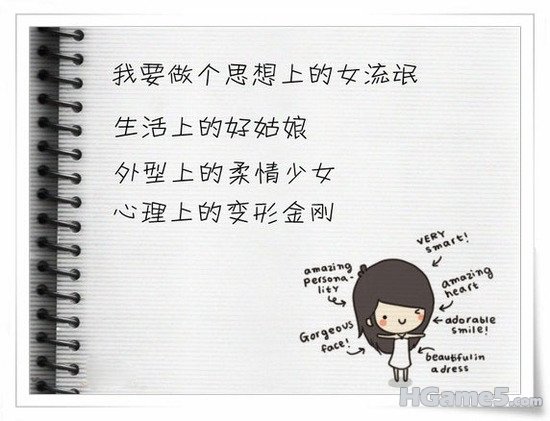 我要做个思想上的女流氓
生活上的好姑娘
外型上的柔情少女
心理上的变形金刚
VERY
smart!
amazing
persona-
lity
amazing
heart
adorable
smile!
Gorgeous
face!
beautiful in
a dress
HGame5.com